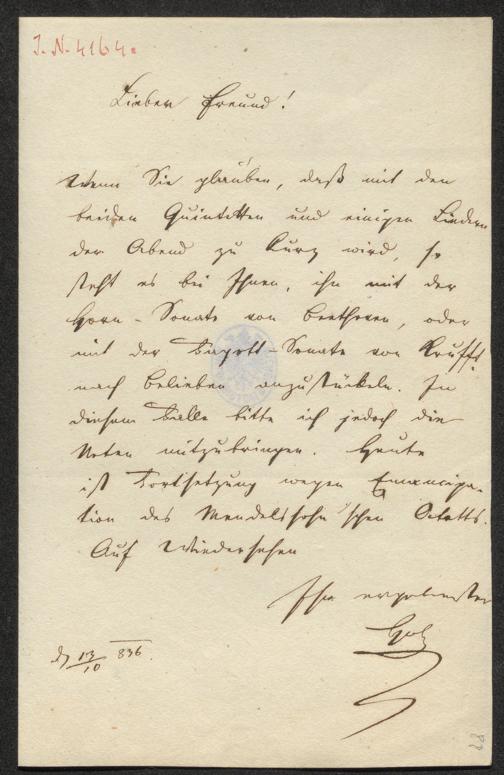 I. N. 4164.
Lieber Freund!
Wenn Sie glauben, daß mit den
beiden Quintetten und einigen Liedern
der Abend zu kurz wird, so
steht es bei Ihnen, ihn mit der
Horn-Sonate von Beethoven, oder
mit der Fagott-Sonate von Krufft
nach Belieben anzustückeln. In
diesem Falle bitte ich jedoch die
Noten mitzubringen. Heute
ist Fortsetzung wegen Emancipa-
tion des Mendelssohn'schen Octetts.
Auf Wiedersehen
Ihr ergebenster
Holz
13/10 836.